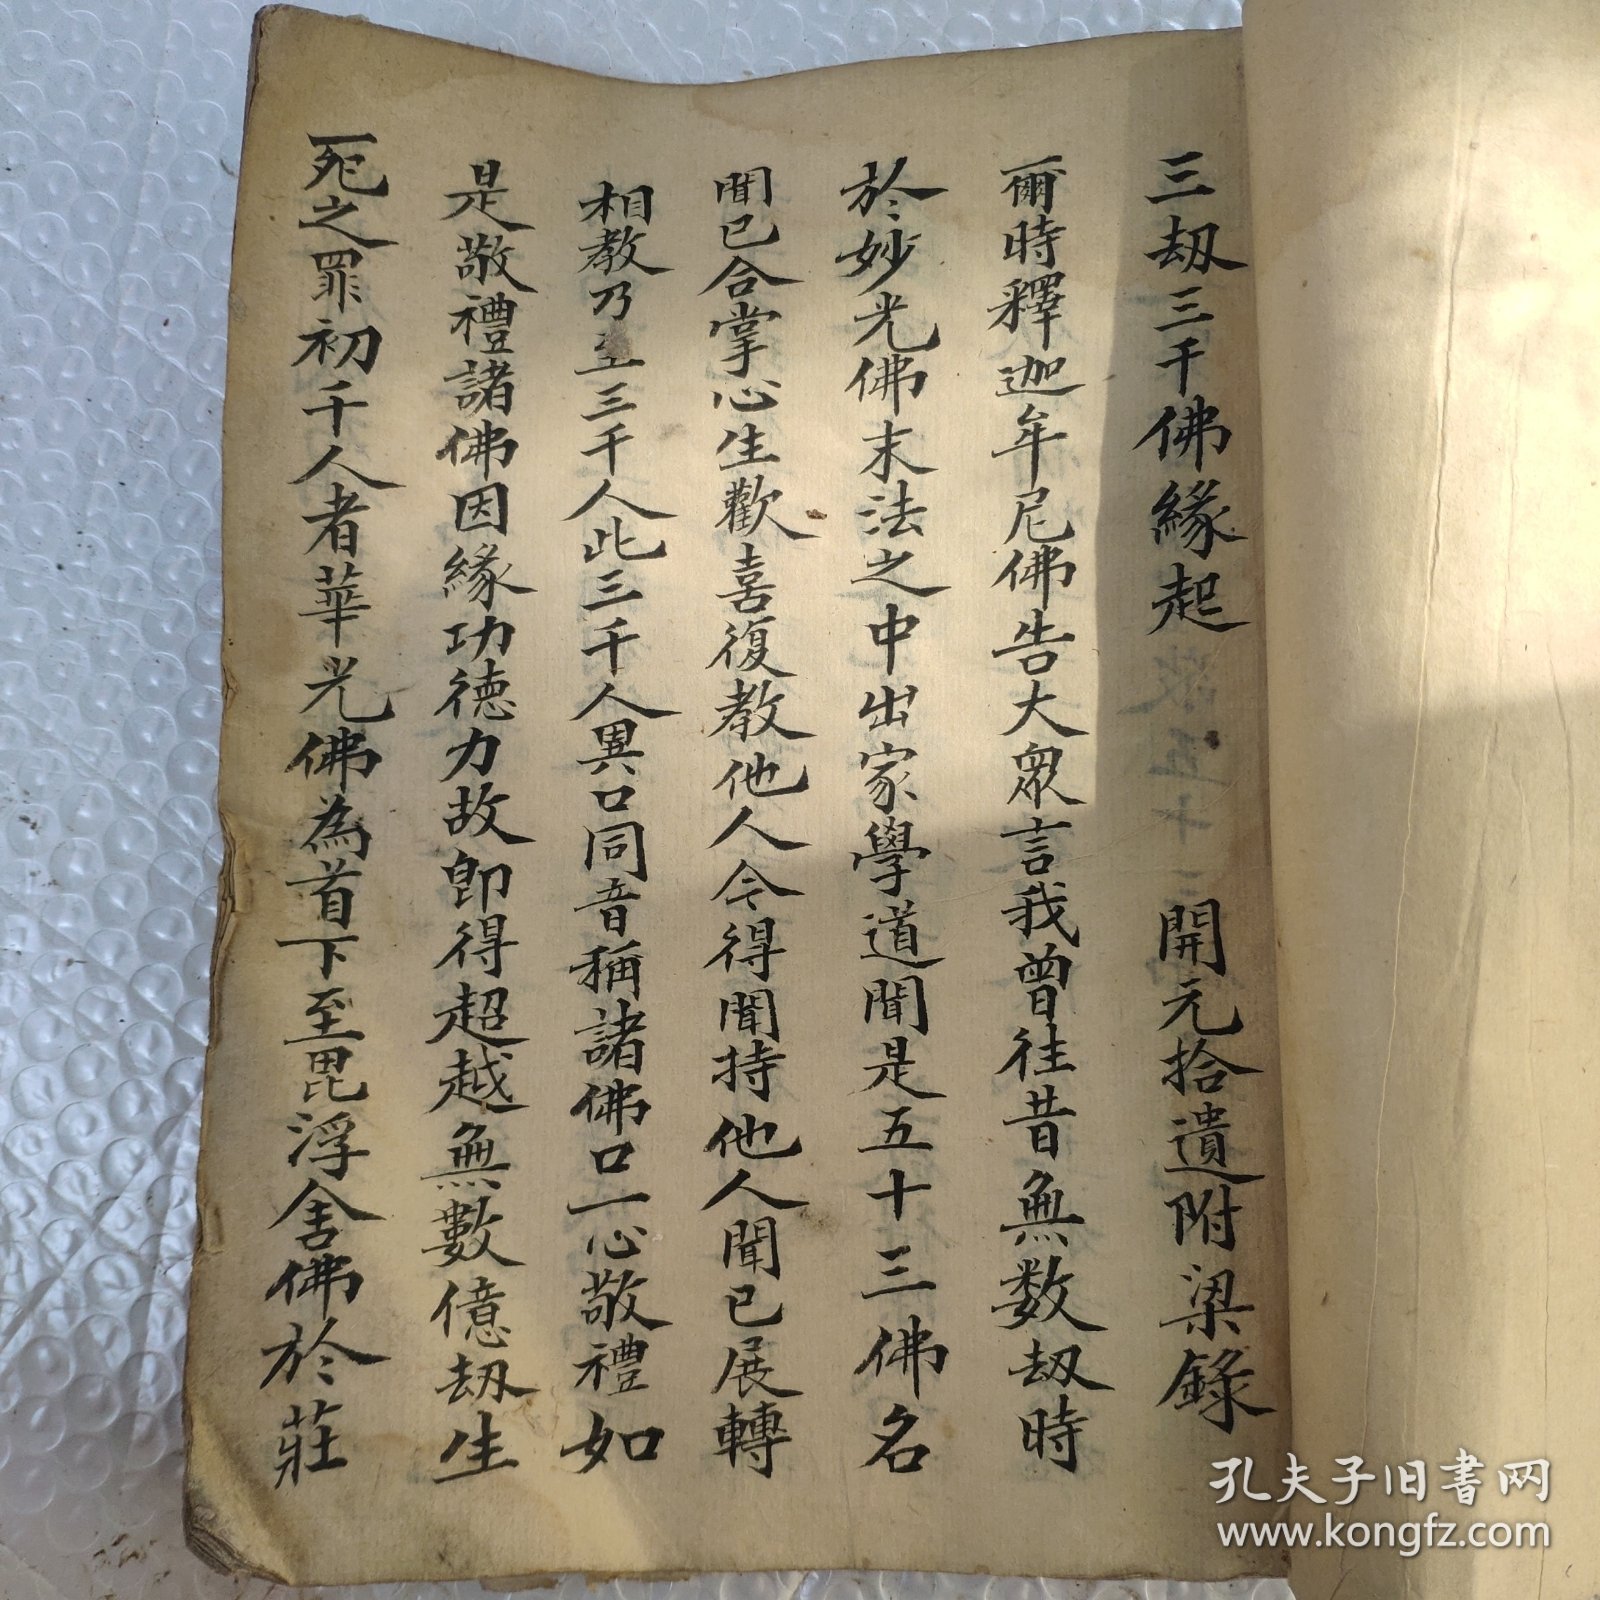 三劫三千佛緣起 開元拾遺附梁錄
爾時釋迦牟尼佛告大眾言我曾往昔無数劫時
於妙光佛末法之中出家學道聞是五十三佛名
聞已合掌心生歡喜復教他人令得聞持他人聞已展轉
相教乃至三千人此三千人異口同音稱諸佛口一心敬禮如
是敬禮諸佛因緣功德力故即得超越無數億劫生
死之罪初千人者華光佛為首下至毘浮舍佛於莊
孔夫子旧书网
www.kongfz.com